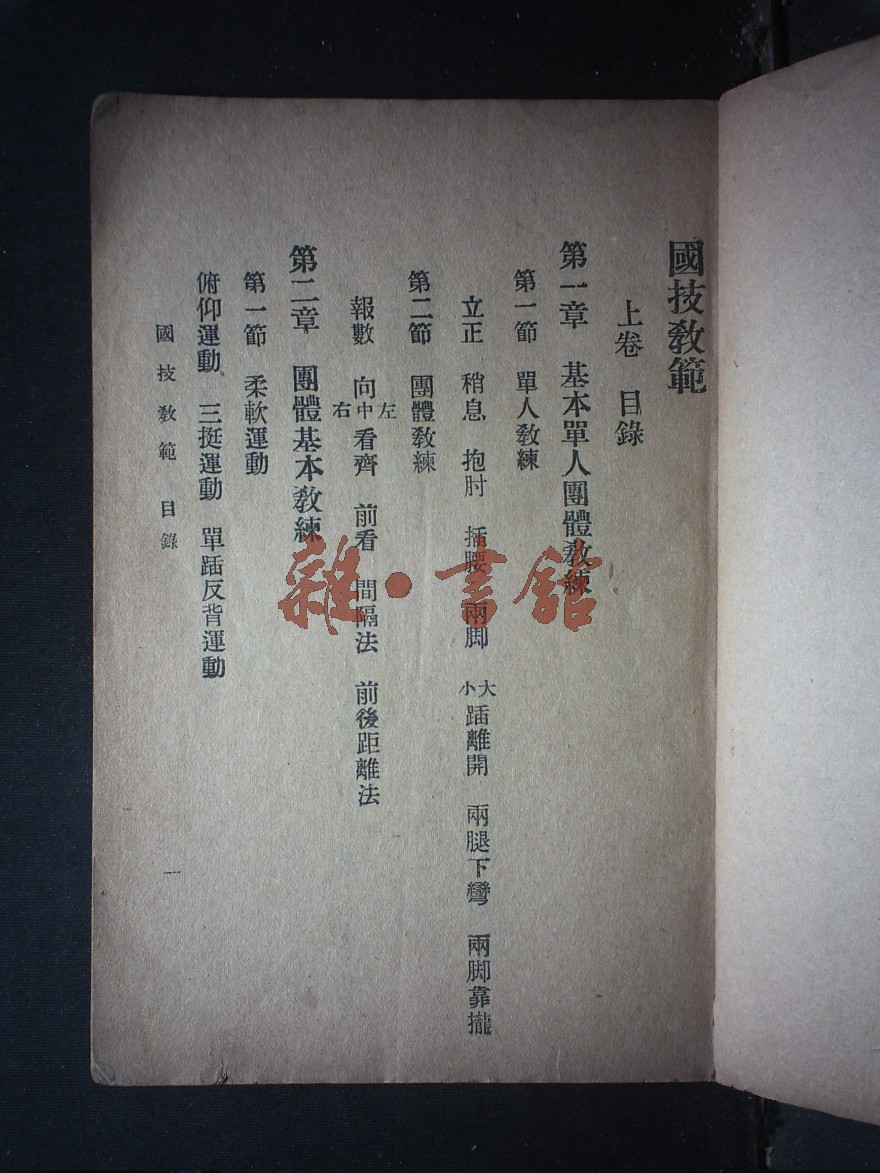 國技教範
上卷 目錄
第一章 基本單人團體教練
第一節 單人教練
立正 稍息 抱肘 插腰 兩脚 大小踏離開 兩腿下彎 兩脚靠攏
第二節 團體教練
報數 向左中右看齊 前看 間隔法 前後距離法
第二章 團體基本教練
第一節 柔軟運動
俯仰運動 三挺運動 單踏反背運動
國技教範 目錄 一
雜·書館